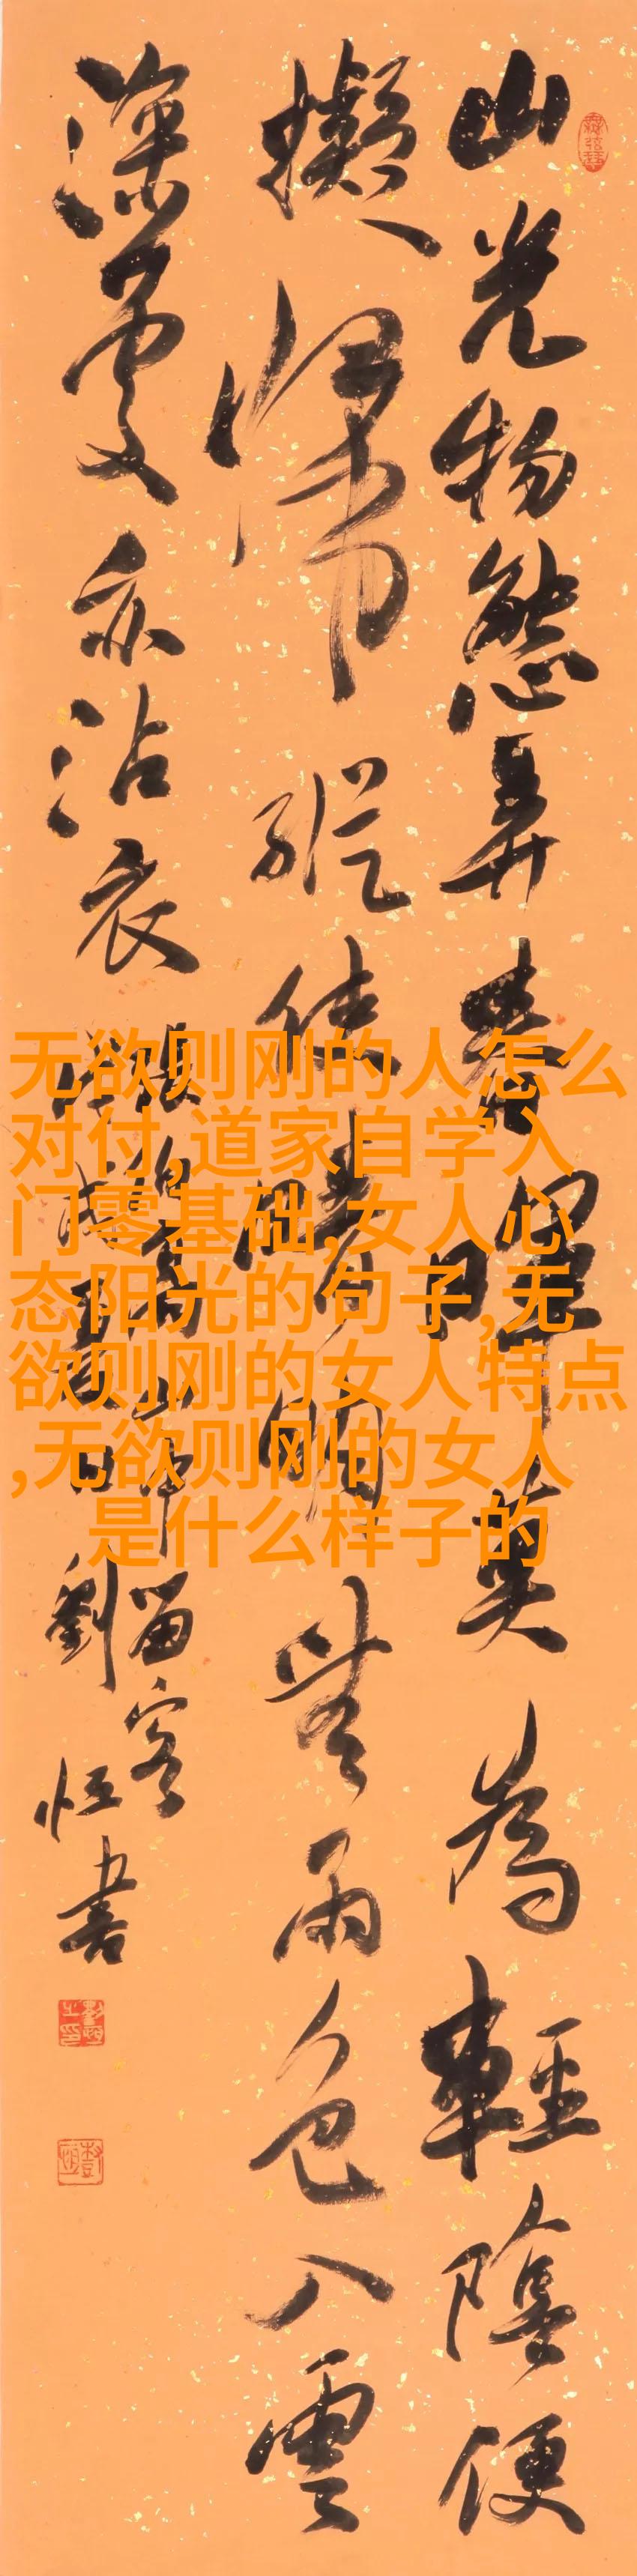 山光物態弄春暉莫為輕陰便
擬歸縱使晴明無雨色入雲
深處亦沾衣
張旭山中留客
劉恒書
无欲则刚的人怎么
对付,道家自学入
门零基础,女人心
态阳光的句子,无
欲则刚的女人特点
,无欲则刚的女人
是什么样子的